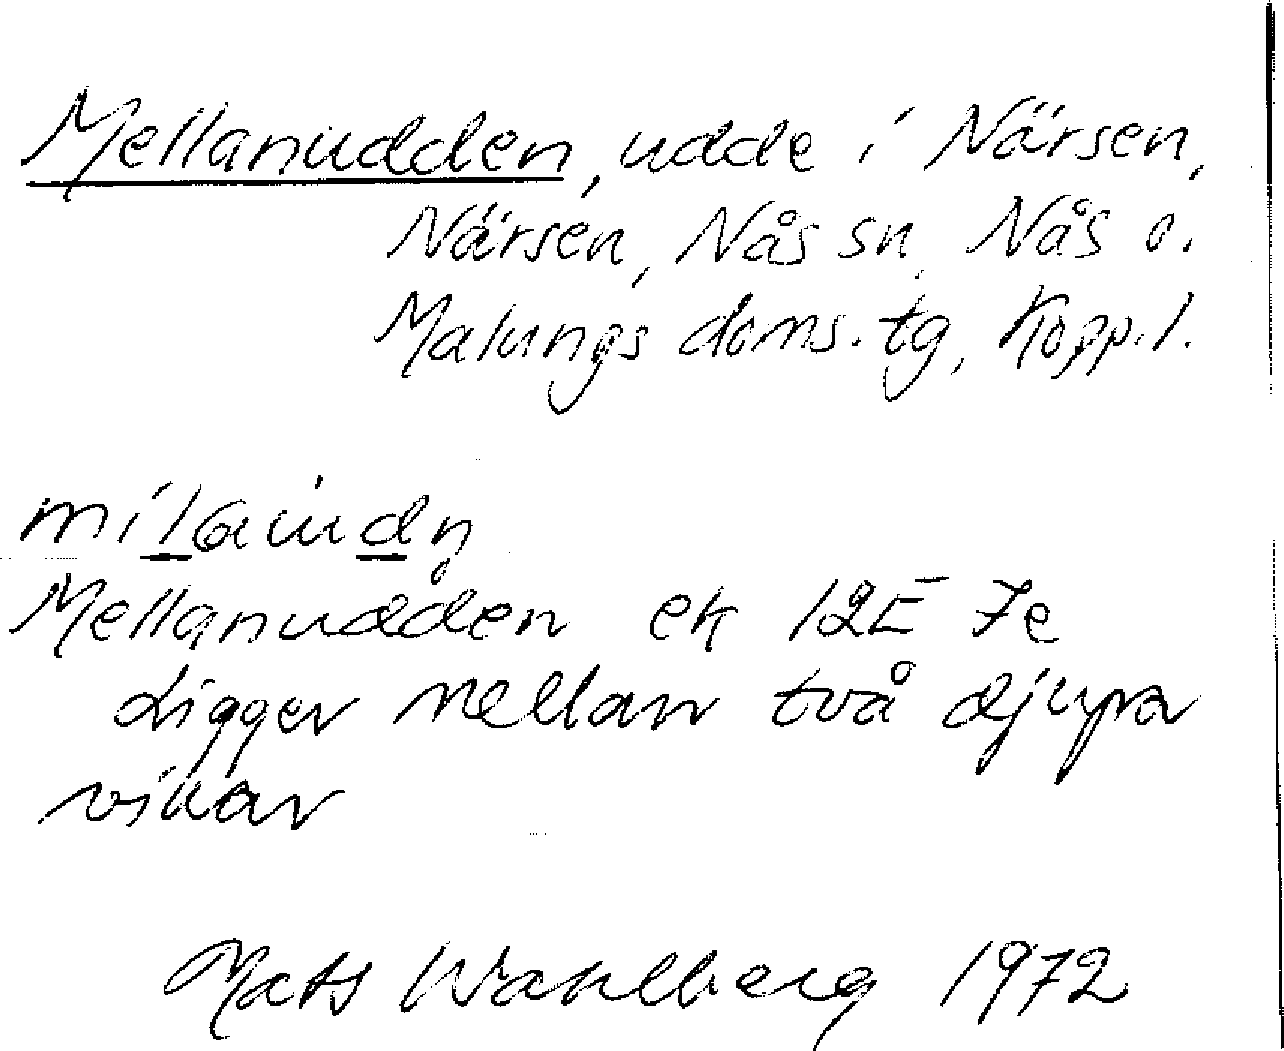 Mellanudden, udde i Närsen,
Närsen, Nås sn, Nås o.
Malungs doms. tg, Kopp. l.
Mellanudden ek 12E 7e
Ligger mellan två djupa
vikar
Mats Wahlberg 1972